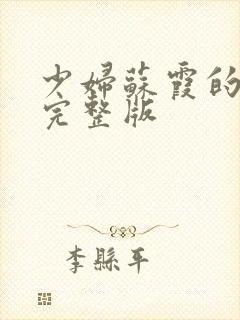 少婦蘇霞的
完整版
李縣平